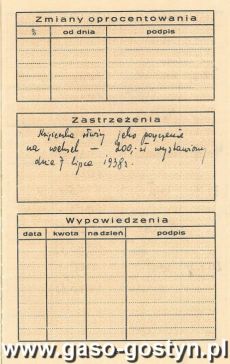 Zmiany oprocentowania
% od dnia podpis
Zastrzeżenia
Książeczka służy jako poręczenie
na weksel – 200,- zł wystawiony
dnia 7 lipca 1938 r.
Wypowiedzenia
data kwota na dzień podpis
www.gaso-gostyn.pl